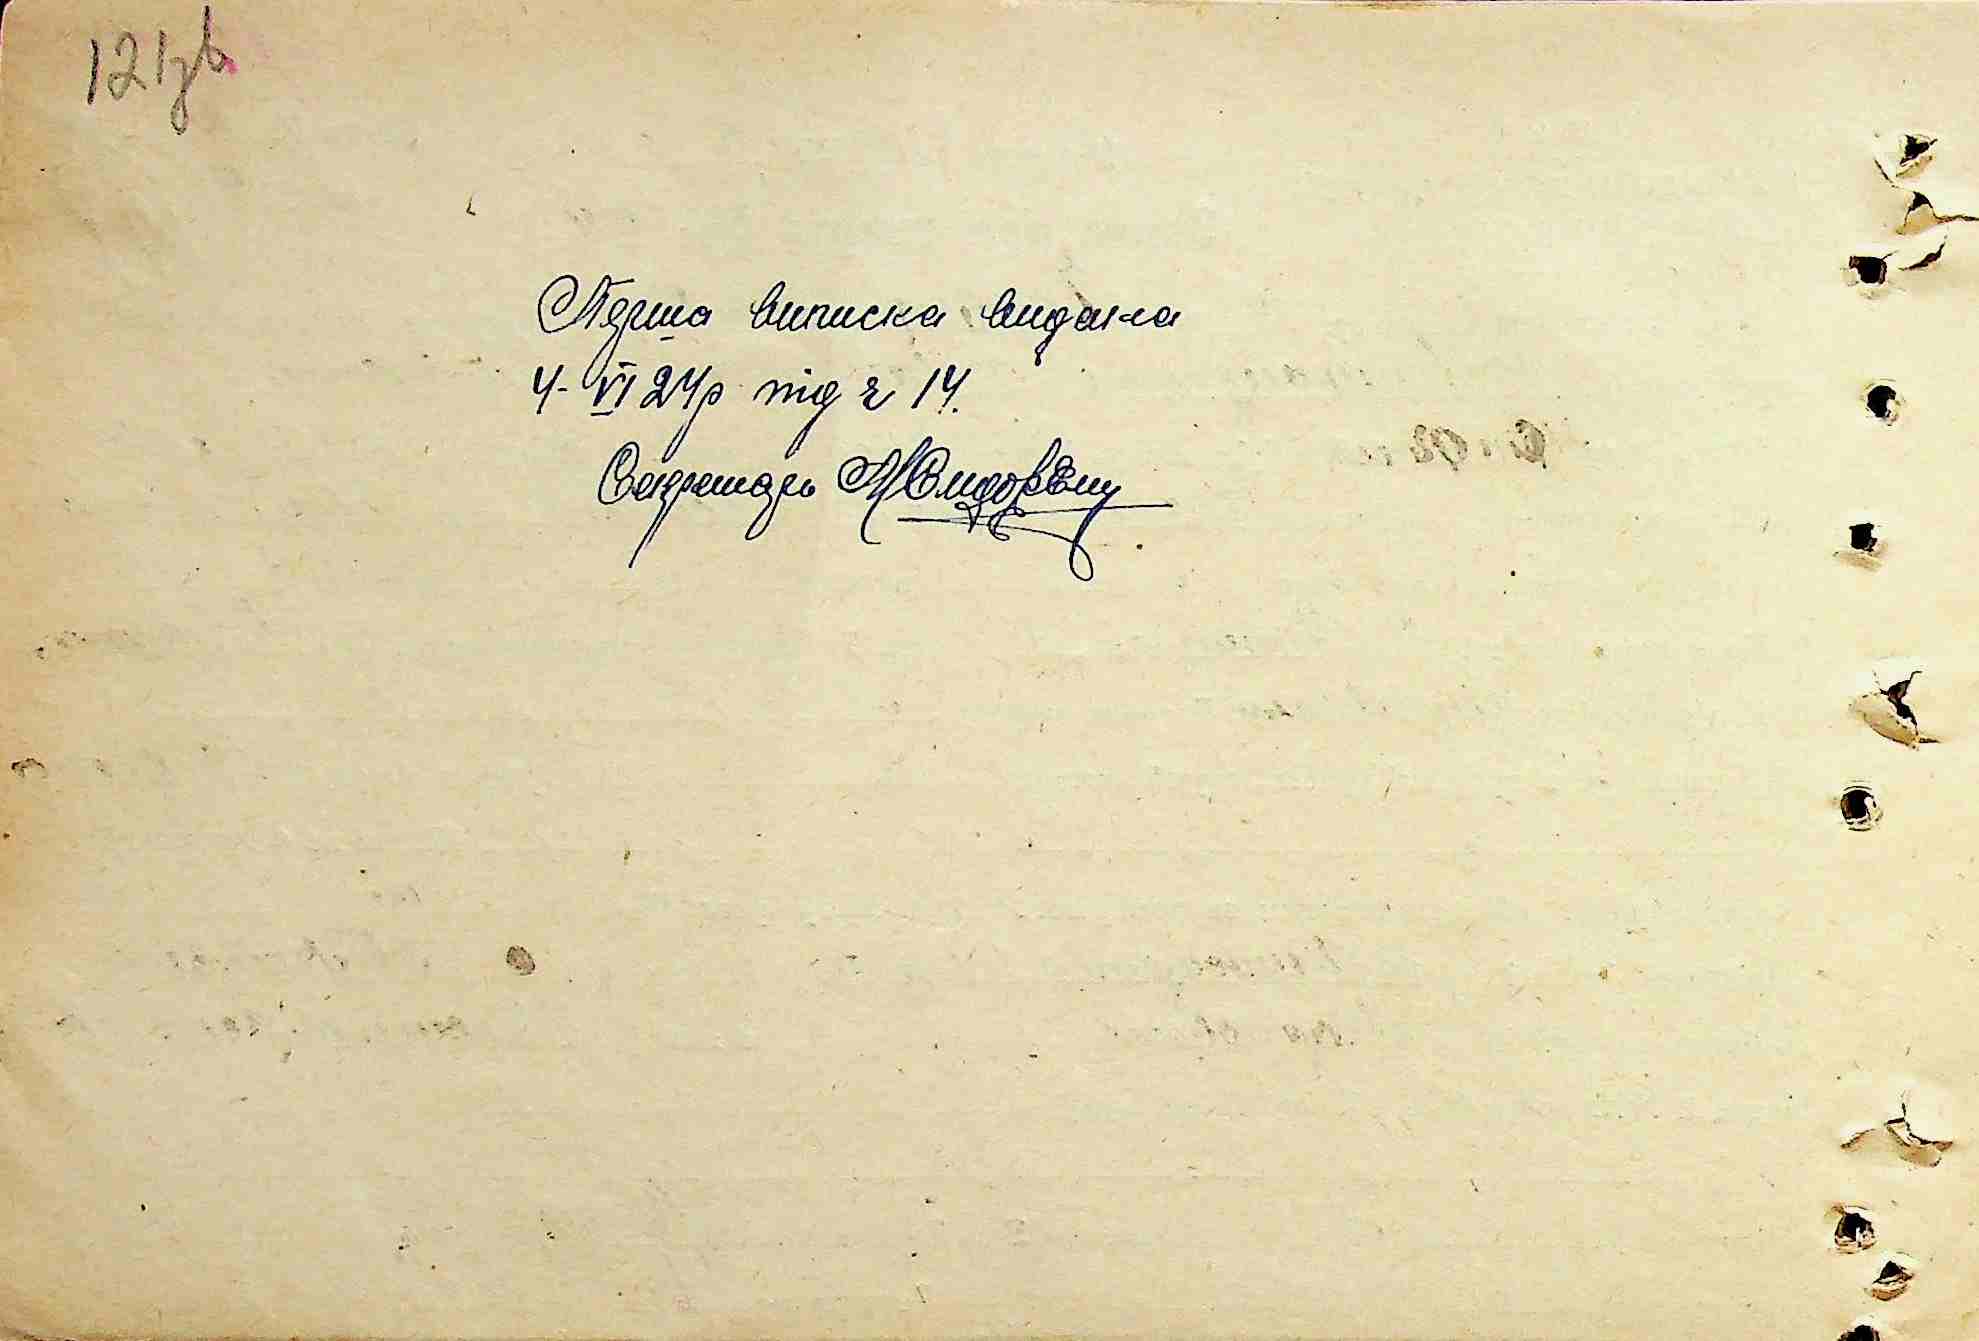 121зв
Перша виписка видана
4-VI 24р під ч 14.
Секретарь